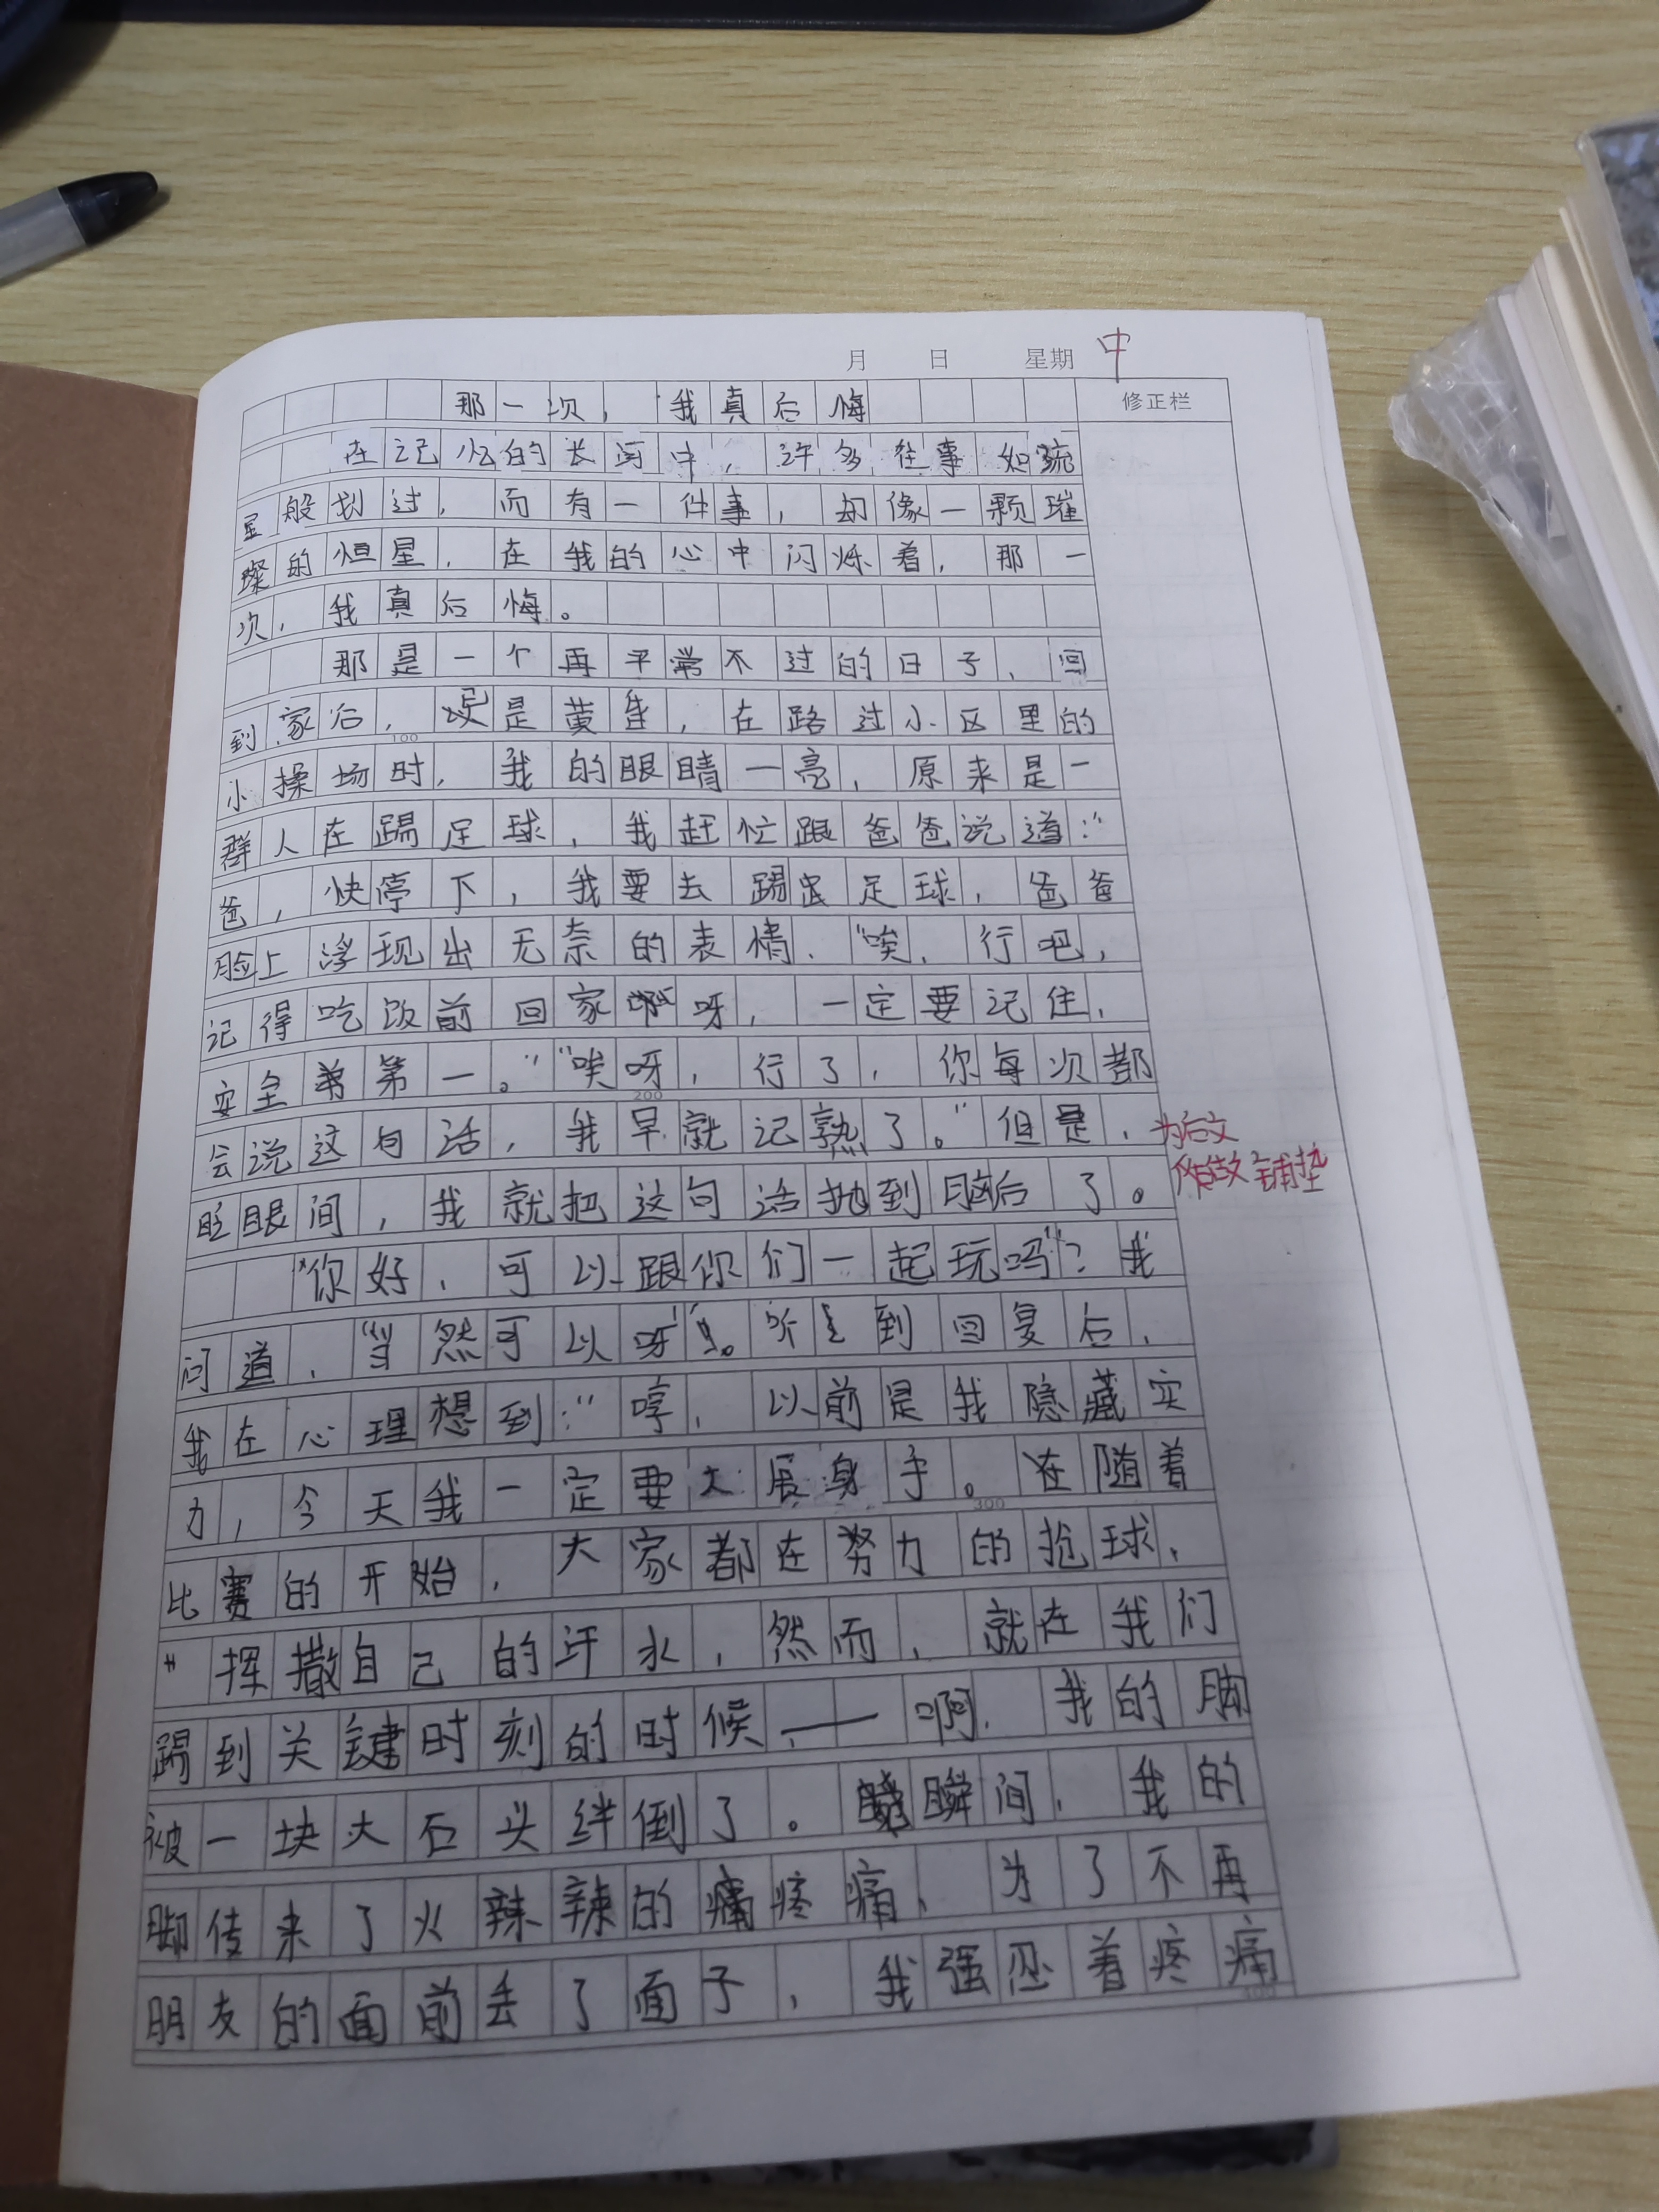 月 日 星期 中
修正栏
那一次，我真后悔
在记忆的长河中，许多往事如流
星般划过，而有一件事，却像一颗璀
璨的恒星，在我的心中闪烁着，那一
次，我真后悔。
那是一个再平常不过的日子，回
到家后，已是黄昏，在路过小区里的
100
小操场时，我的眼睛一亮，原来是一
群人在踢足球，我赶忙跟爸爸说道："
爸，快停下，我要去踢足球，爸爸
脸上浮现出无奈的表情，"唉，行吧，
记得吃饭前回家呀，一定要记住，
安全第一。""唉呀，行了，你每次都
200
会说这句话，我早就记熟了。"但是，
为后文
作做铺垫
眨眼间，我就把这句话抛到脑后了。
"你好，可以跟你们一起玩吗"？我
问道，"当然可以呀"。听到回复后，
我在心理想到："哼，以前是我隐藏实
力，今天我一定要大展身手。在随着
300
比赛的开始，大家都在努力的抢球，
挥撒自己的汗水，然而，就在我们
踢到关键时刻的时候，——啊，我的脚
被一块大石头绊倒了。瞬间，我的
脚传来了火辣辣的疼痛，为了不再
朋友的面前丢了面子，我强忍着疼痛
400